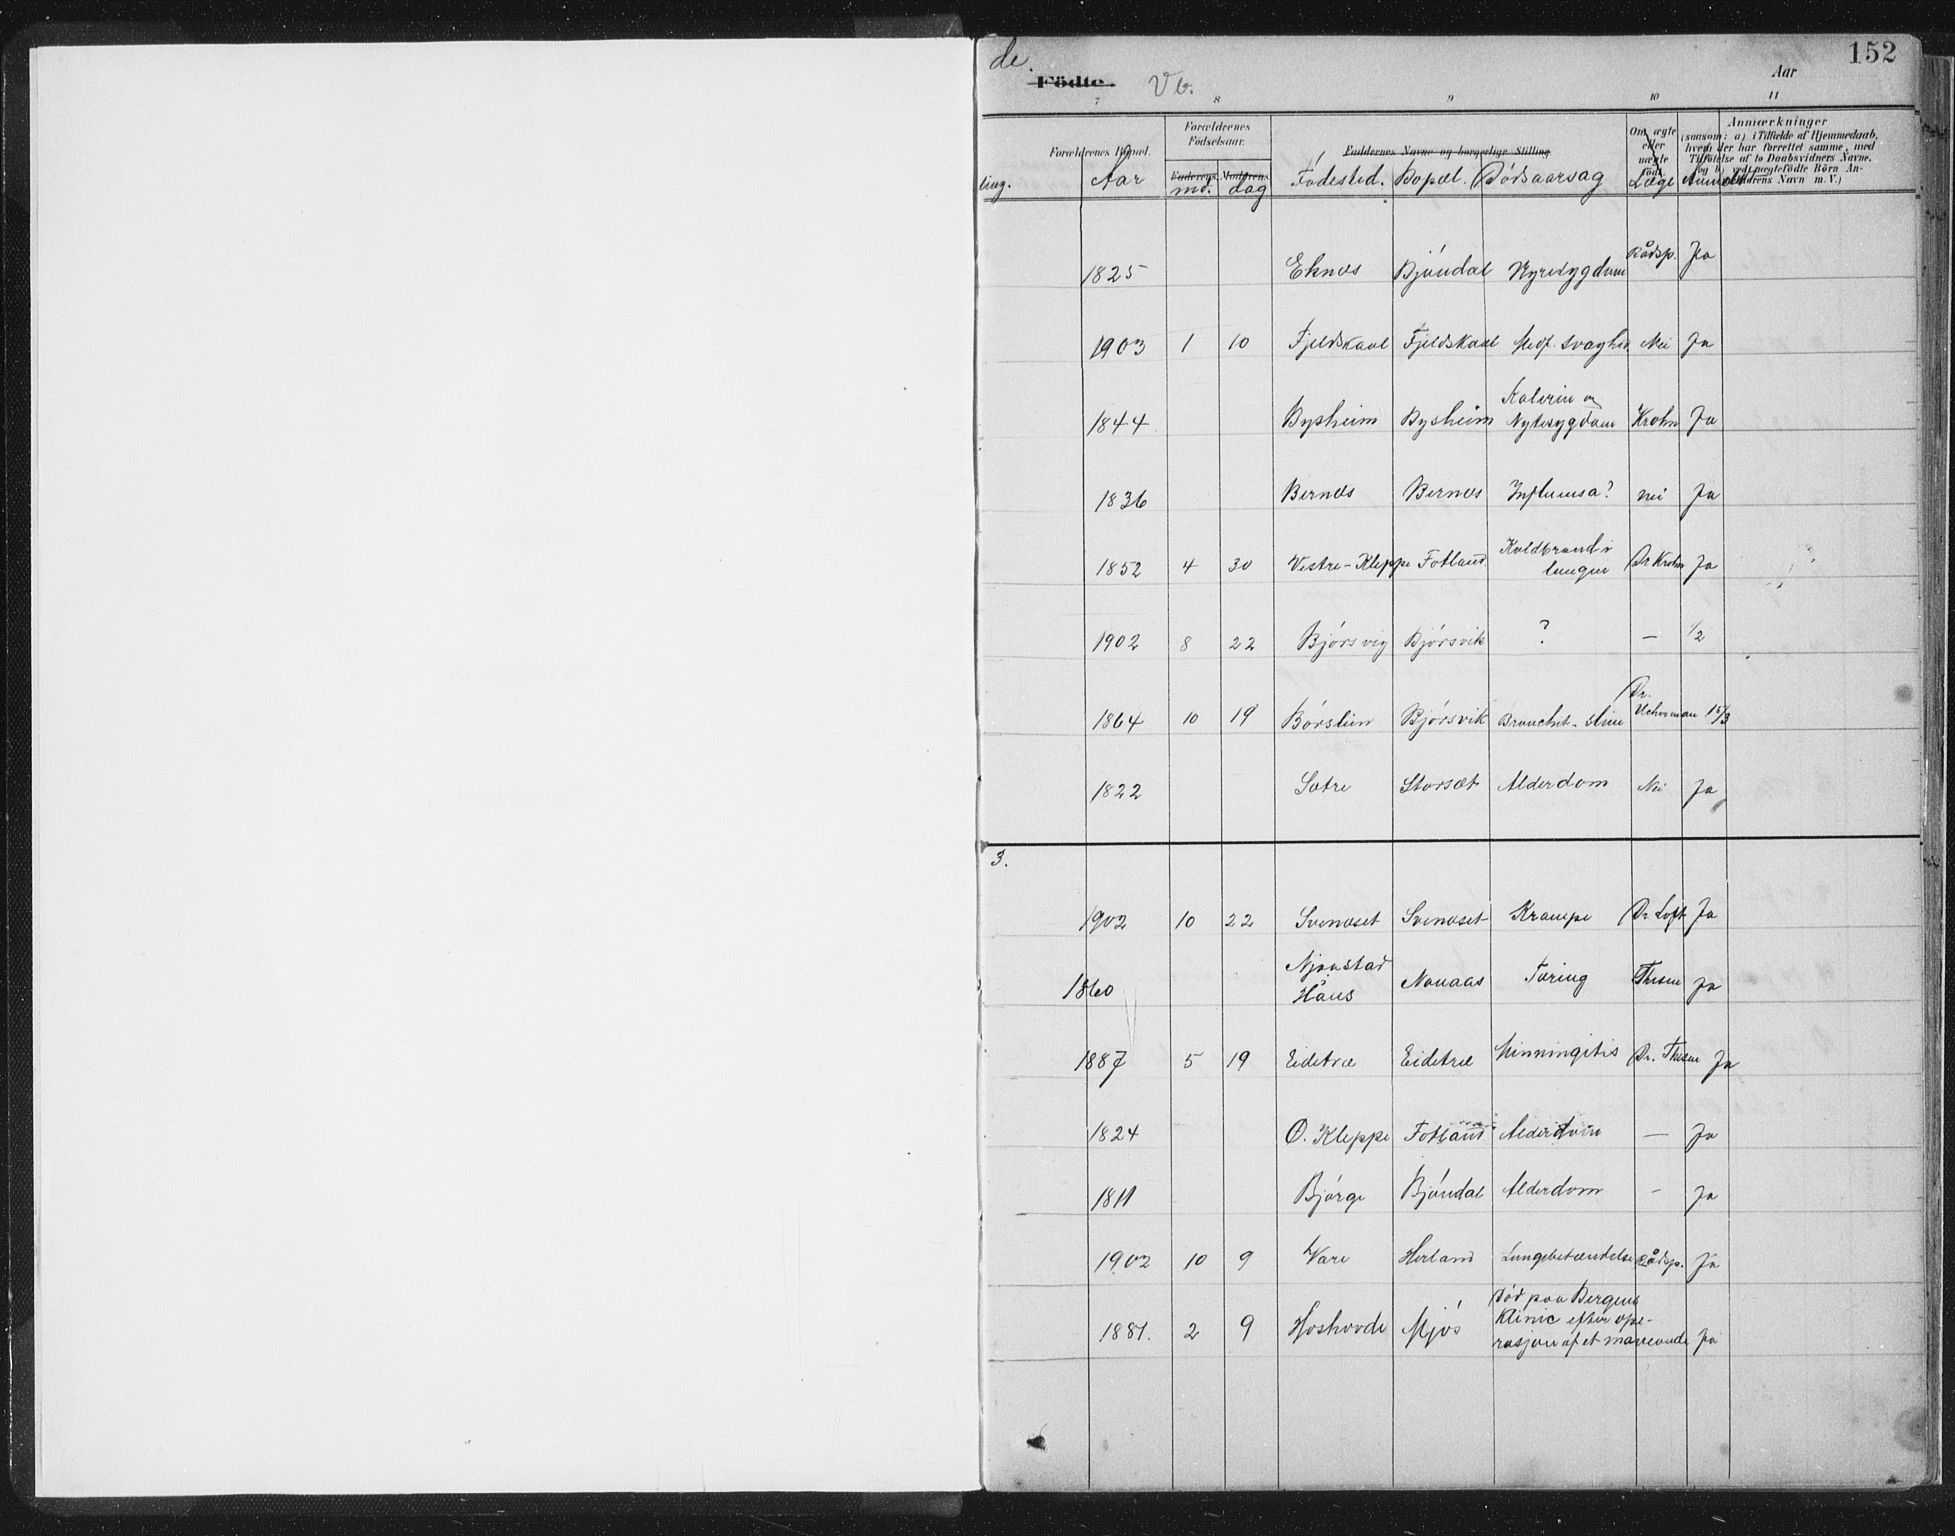 de.
152
Födte.
Vb.
Aar
7 8 9 10 11
Forældrenes Bopæl.
Forældrenes Födselsaar.
Faderens Moderens
Faddernes Navne og borgerlige Stilling
Om ægte eller uægte født.
Anmærkninger
(saasom: a) i Tilfælde af Hjemmedaab,
hvem der har forrettet samme, med
Tilföielse af to Daabsvidners Navne.
og b) ved uægtefödte Börn An-
Navn m. V.)
ling. Aar md. dag Fødested. Bopæl. Dødsaarsag Læge Anmeldt
1825 Eknes Bjøndal Nyresygdom Rådsp. Ja
1903 1 10 Fjeldskaal Fjeldskaal Medf. svaghed Nei Ja
1844 Bysheim Bysheim Kolerin og Nyresygdom Krohn Ja
1836 Bernes Bernes Influensa? nei Ja
1852 4 30 Vestre-Kleppe Fotland Koldbrand i lungen Dr Krohn Ja
1902 8 22 Bjørsvig Bjørsvik ? — 1/2
1864 10 19 Børslien Bjørsvik Dr. Ucherman 15/3
1822 Sætre Storsæt Alderdom Nei Ja
3.
1902 10 22 Svenæset Svenæset Krampe Dr Loft Ja
1860 Njaastad Håus Nonaas Tæring Thesen Ja
1887 5 19 Eidetræ Eidetræ Minningitis Dr. Thesen Ja
1824 O. Kleppe Fotland Alderdom — Ja
1811 Bjørge Bjøndal Alderdom - Ja
1902 10 9 Vare Herland Lungebetændelse Rådsp. Ja
1881. 2 9 Hoshovde Mjøs Død paa Bergens Klinic efter ope-
rasjon af et maveonde Ja